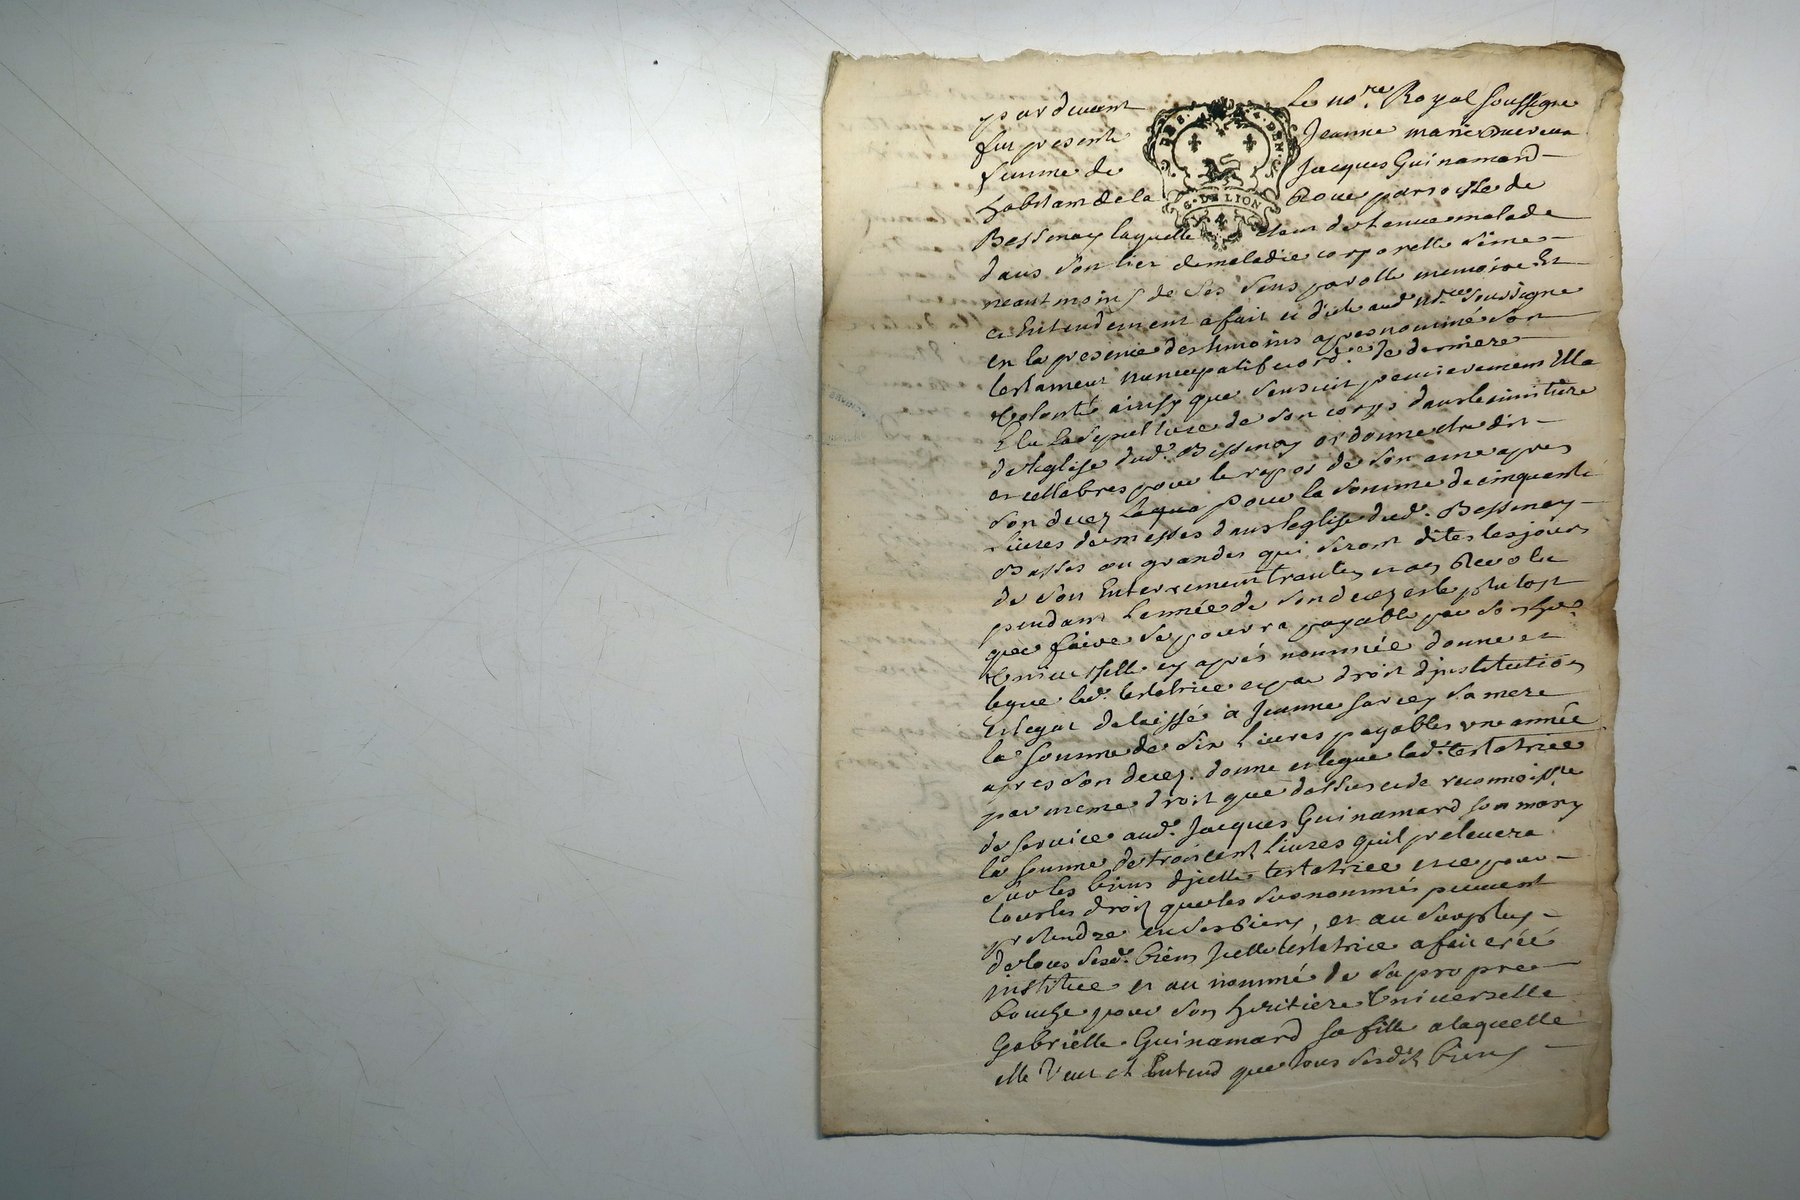 par devant Le no.re Royal soussigne
fut presente Jeanne marie
femme de Jacques Guinamand
habitant de la Roue parroisse de
Bessenay laquelle etant detenue malade
dans son lict de maladie corporelle seine
neantmoins de ses sens parolle memoire Et
et Entendement a fait et dicté aud. no.re soussigne
en la presence des temoins apres nommé son
testament nuncupatif et ord.e de derniere
volonté ainsy que sensuit premierement Ella
Elu La sepulture de son corps dans le cimitiere
de leglise dud. Bessenay ordonne etre dit
et cellebres pour le repos de son ame apres
son decez pour la somme de cinquante
livres de messes dans leglise dud. Bessenay
Basses ou grandes qui seront dites les jours
de son Enterrement trantes et an Revolu
pendant lannée de son decez et le plutost
que faire se pourra payable par son he.re
universelle cy aprés nommée donne et
legue lad. testatrice et par droit dinstitution
et legat delaissé a Jeanne sarcey sa mere
la somme de six Livres payables une année
apres son decez. donne et legue lad. testatrice
par meme droit que dessus et de reconnoiss.ce
de service aud. Jacques Guinamand son mary
la somme de trois cent livres quil prelevera
sur les biens dicelle testatrice et ce pour
tous les droit que les susnommés peuvent
pretendre en ses biens, et au surplus
de tous sesd. biens Icelle testatrice a fait créé
institue et au nommé de sa propre
bouche pour son heritiere Universelle
Gabrielle Guinamand sa fille a laquelle
elle Veut et Entend que tous sesdit biens
G. DE LION